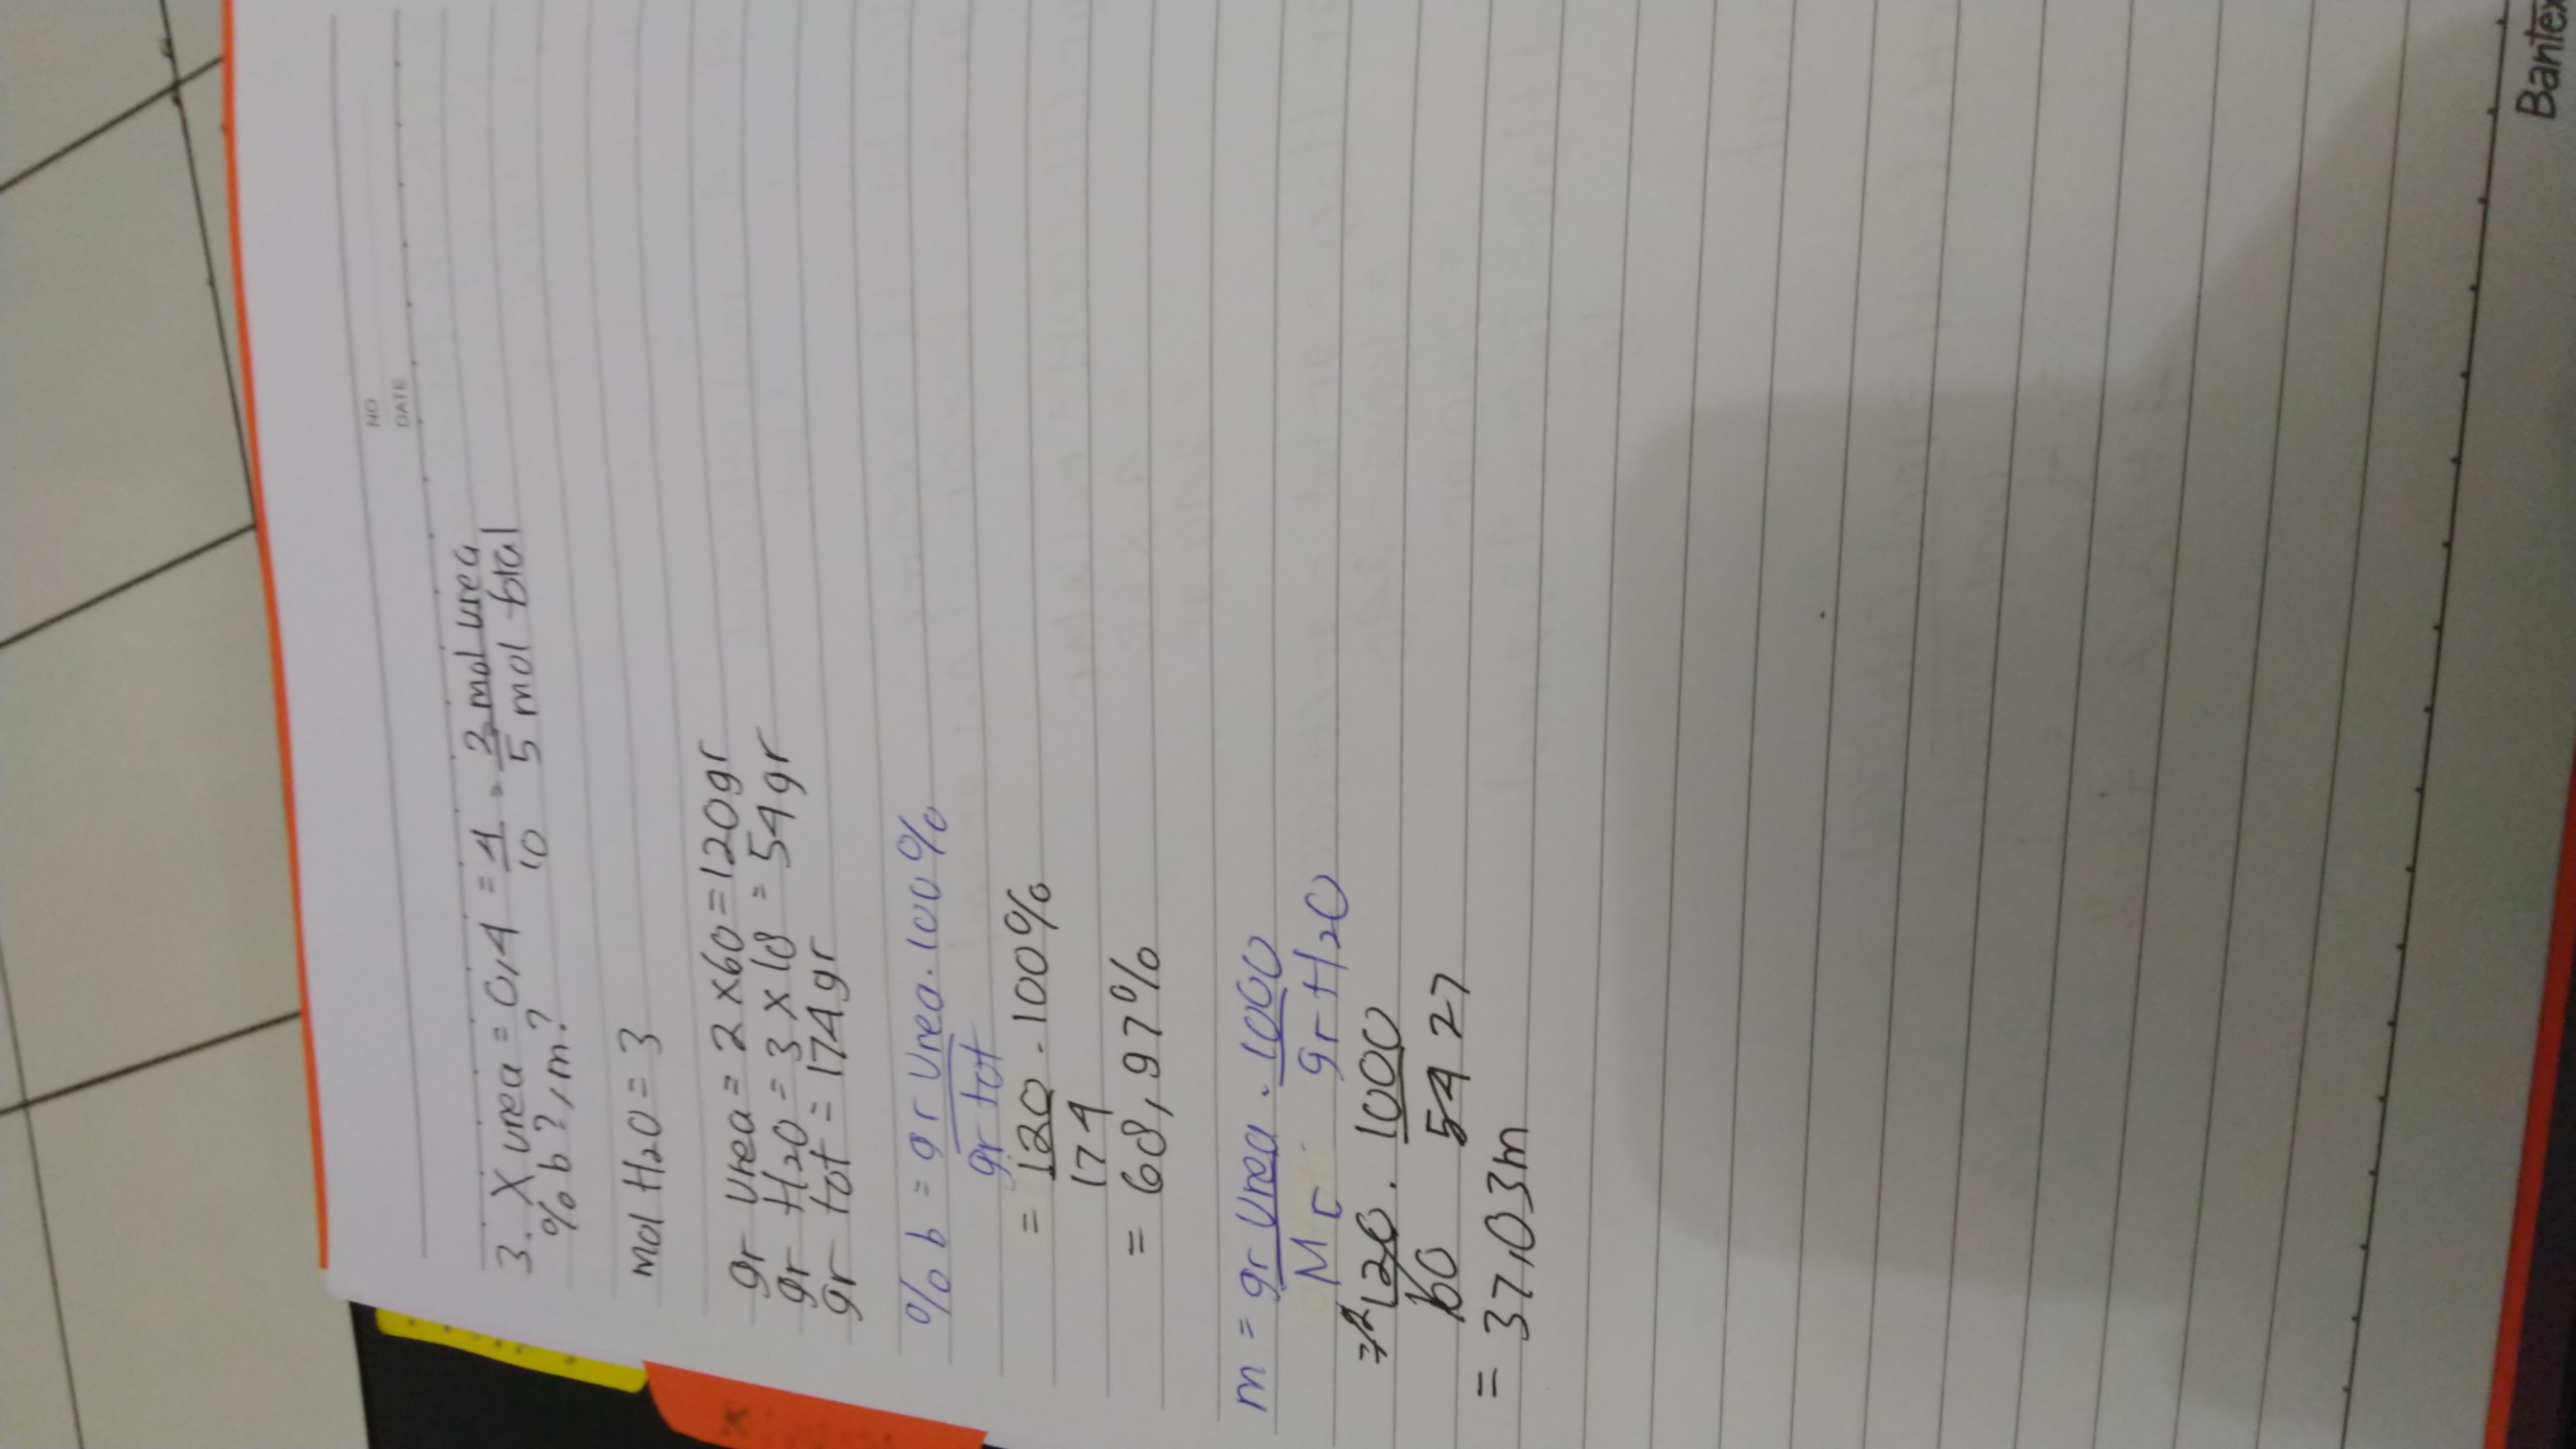 NO
DATE
3. X urea = 0,4 = 4/10 = 2 mol urea / 5 mol total
% b ?, m?
mol H2O = 3
gr urea = 2 x 60 = 120 gr
gr H2O = 3 x 18 = 54 gr
gr tot = 174 gr
% b = gr urea . 100%
gr tot
= 120 . 100%
174
= 68,97%
m = gr urea . 1000
Mr gr H2O
= 2 120 . 1000
60 54 27
= 37,03 m
Bantex